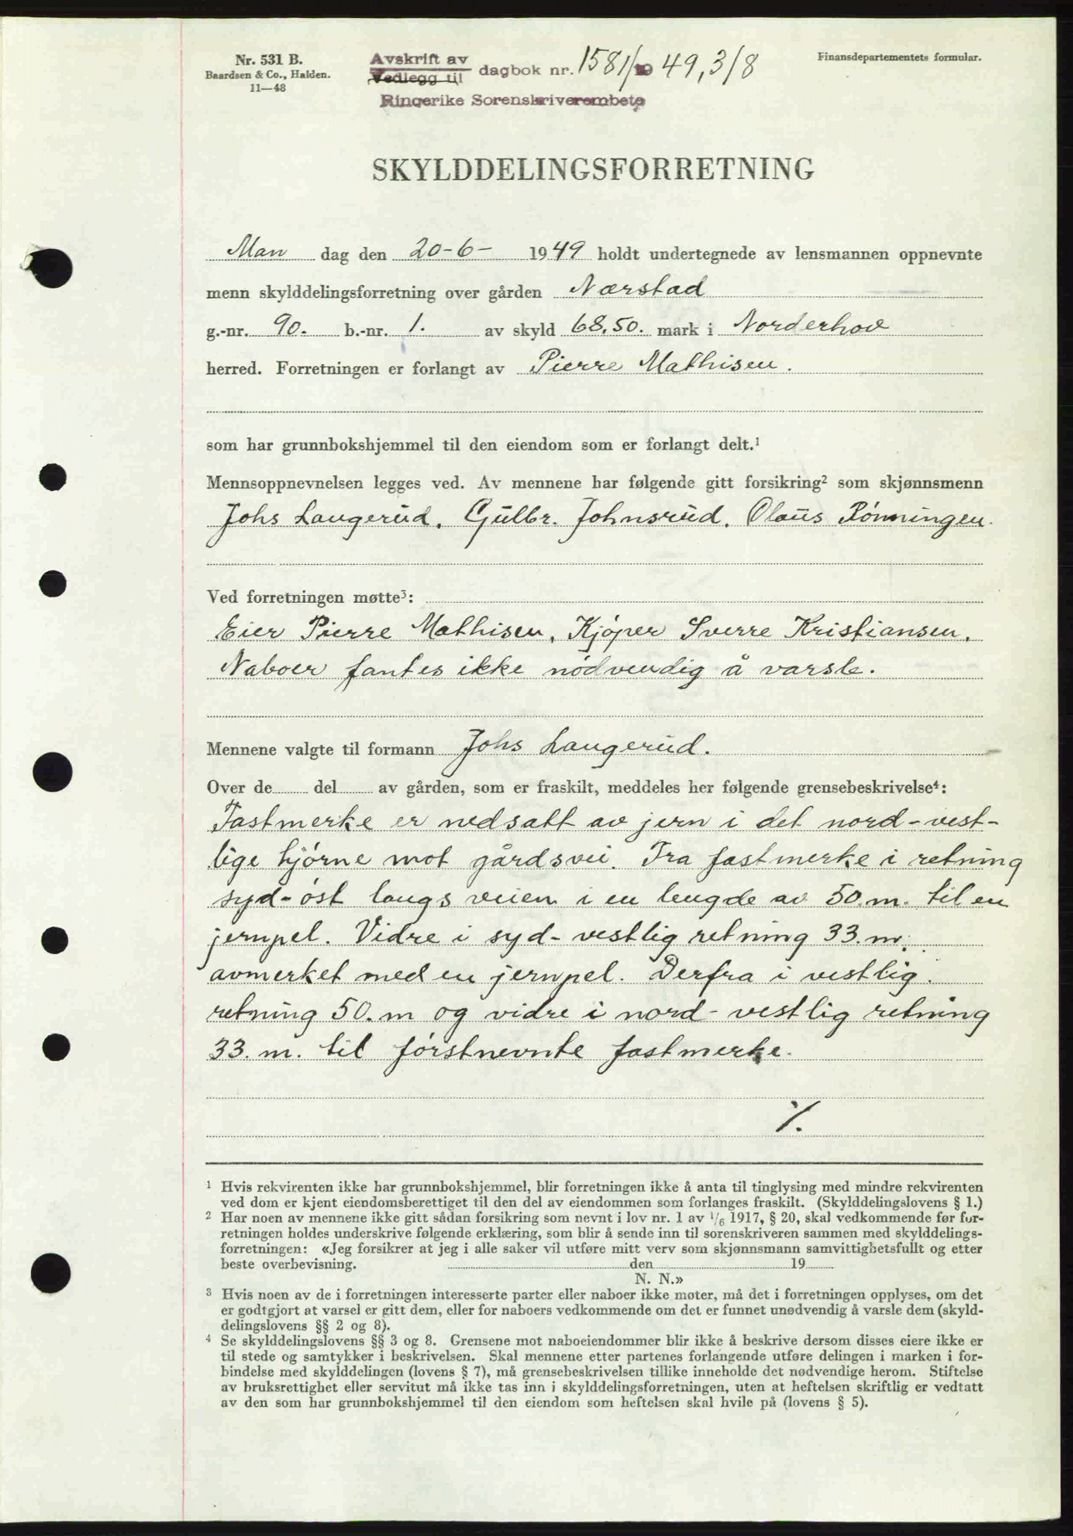 Nr. 531 B.
Baardsen & Co., Halden.
11—48
Avskrift av
Vedlegg til dagbok nr. 1581/1949, 3/8
Ringerike Sorenskriverembete
Finansdepartementets formular.
SKYLDDELINGSFORRETNING
Man dag den 20-6- 1949 holdt undertegnede av lensmannen oppnevnte
menn skylddelingsforretning over gården Nærstad
g.-nr. 90. b.-nr. 1. av skyld 68,50. mark i Norderhov
herred. Forretningen er forlangt av Pierre Mathisen.
som har grunnbokshjemmel til den eiendom som er forlangt delt.¹
Mennsoppnevnelsen legges ved. Av mennene har følgende gitt forsikring² som skjønnsmenn
Johs Laugerud, Gulbr. Johnsrud, Olaus Rönningen.
Ved forretningen møtte³:
Eier Pierre Mathisen, Kjóper Sverre Kristiansen.
Naboer fantes ikke nódvendig å varsle.
Mennene valgte til formann Johs Laugerud.
Over de del av gården, som er fraskilt, meddeles her følgende grensebeskrivelse⁴:
Fastmerke er nedsatt av jern i det nord-vest-
lige hjórne mot gårdsvei. Fra fastmerke i retning
syd-óst langs veien i en lengde av 50.m. til en
jernpel. Vidre i syd-vestlig retning 33.m.
avmerket med en jernpel. Derfra i vestlig
retning 50.m og vidre i nord-vestlig retning
33.m. til fórstnevnte fastmerke.
⁒
¹ Hvis rekvirenten ikke har grunnbokshjemmel, blir forretningen ikke å anta til tinglysing med mindre rekvirenten
ved dom er kjent eiendomsberettiget til den del av eiendommen som forlanges fraskilt. (Skylddelingslovens § 1.)
² Har noen av mennene ikke gitt sådan forsikring som nevnt i lov nr. 1 av 1/6 1917, § 20, skal vedkommende før for-
retningen holdes underskrive følgende erklæring, som blir å sende inn til sorenskriveren sammen med skylddelings-
forretningen: «Jeg forsikrer at jeg i alle saker vil utføre mitt verv som skjønnsmann samvittighetsfullt og etter
beste overbevisning. den 19
N. N.»
³ Hvis noen av de i forretningen interesserte parter eller naboer ikke møter, må det i forretningen opplyses, om det
er godtgjort at varsel er gitt dem, eller for naboers vedkommende om det er funnet unødvendig å varsle dem (skyld-
delingslovens §§ 2 og 8).
⁴ Se skylddelingslovens §§ 3 og 8. Grensene mot naboeiendommer blir ikke å beskrive dersom disses eiere ikke er
til stede og samtykker i beskrivelsen. Skal mennene etter partenes forlangende utføre delingen i marken i for-
bindelse med skylddelingen (lovens § 7), må grensebeskrivelsen tillike inneholde det nødvendige herom. Stiftelse
av bruksrettighet eller servitut må ikke tas inn i skylddelingsforretningen, uten at heftelsen skriftlig er vedtatt
av den som har grunnbokshjemmel til den eiendom som heftelsen skal hvile på (lovens § 5).